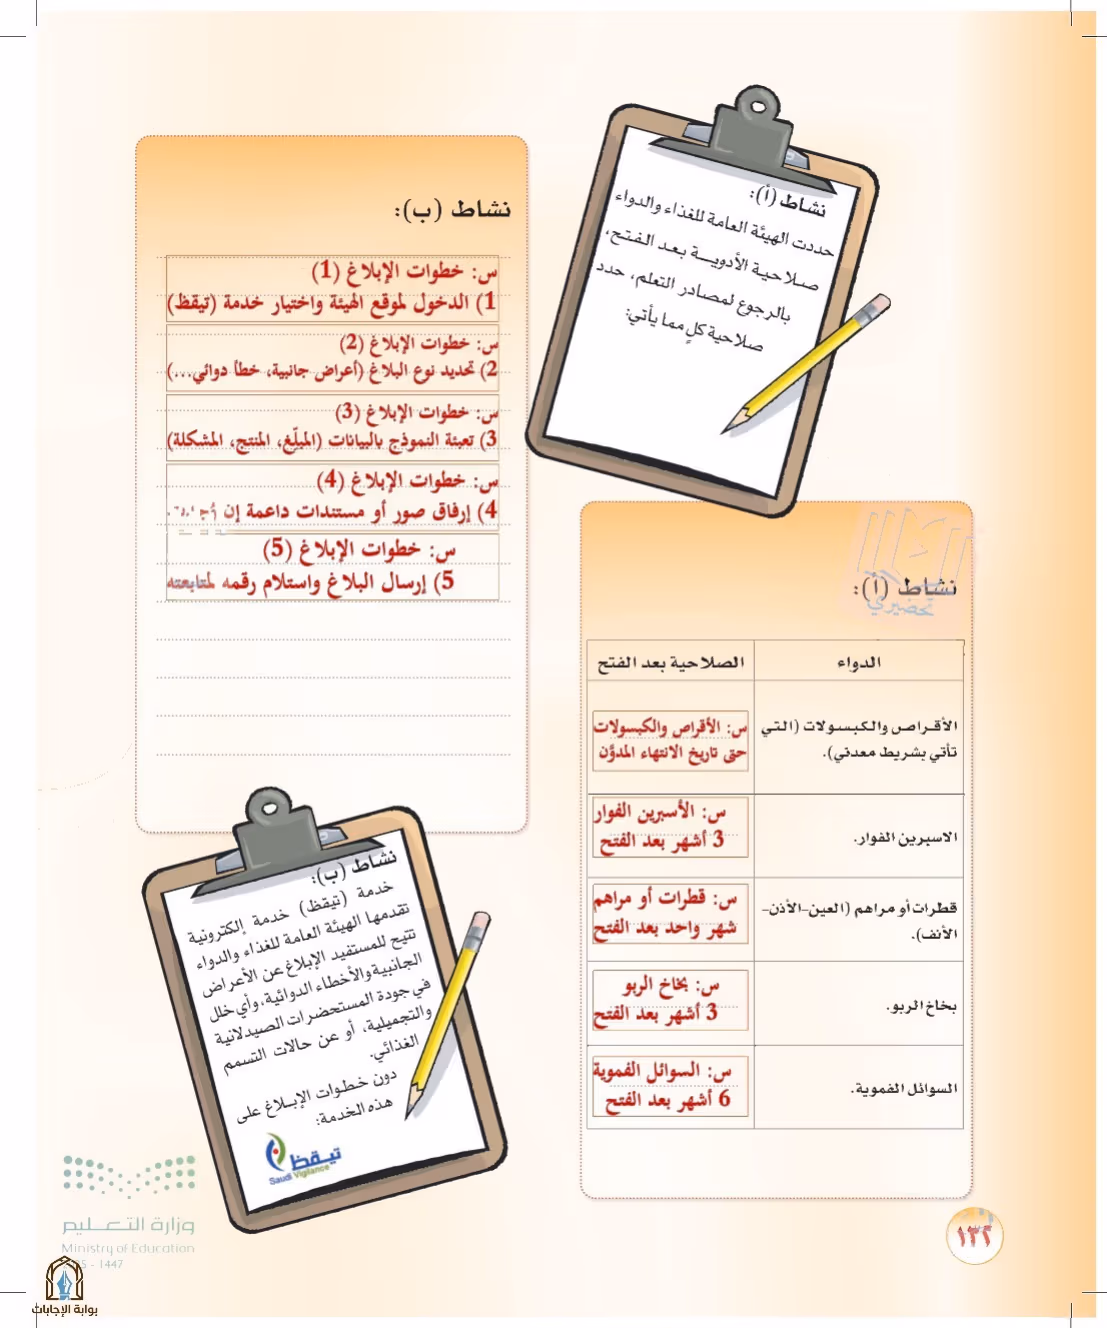 نشاط (أ):
حددت الهيئة العامة للغذاء والدواء
صلاحية الأدوية بعد الفتح،
بالرجوع لمصادر التعلم، حدد
صلاحية كلٍ مما يأتي:
نشاط (أ):
الدواء
الصلاحية بعد الفتح
الأقراص والكبسولات (التي
تأتي بشريط معدني).
س: الأقراص والكبسولات
حتى تاريخ الانتهاء المدوَّن
الاسبرين الفوار.
س: الأسبرين الفوار
3 أشهر بعد الفتح
قطرات أو مراهم (العين-الأذن-
الأنف).
س: قطرات أو مراهم
شهر واحد بعد الفتح
بخاخ الربو.
س: بخاخ الربو
3 أشهر بعد الفتح
السوائل الفموية.
س: السوائل الفموية
6 أشهر بعد الفتح
نشاط (ب):
س: خطوات الإبلاغ (1)
1) الدخول لموقع الهيئة واختيار خدمة (تيقظ)
س: خطوات الإبلاغ (2)
2) تحديد نوع البلاغ (أعراض جانبية، خطأ دوائي...)
س: خطوات الإبلاغ (3)
3) تعبئة النموذج بالبيانات (المبلّغ، المنتج، المشكلة)
س: خطوات الإبلاغ (4)
4) إرفاق صور أو مستندات داعمة إن
س: خطوات الإبلاغ (5)
5) إرسال البلاغ واستلام رقمه لمتابعته
نشاط (ب):
خدمة (تيقظ) خدمة إلكترونية
تقدمها الهيئة العامة للغذاء والدواء
تتيح للمستفيد الإبلاغ عن الأعراض
الجانبية والأخطاء الدوائية، وأي خلل
في جودة المستحضرات الصيدلانية
والتجميلية، أو عن حالات التسمم
الغذائي.
دون خطوات الإبلاغ على
هذه الخدمة:
تيقظ
Saudi Vigilance
وزارة التعليم
Ministry of Education
- 1447
بوابة الإجابات
١٣٢
تحضيري